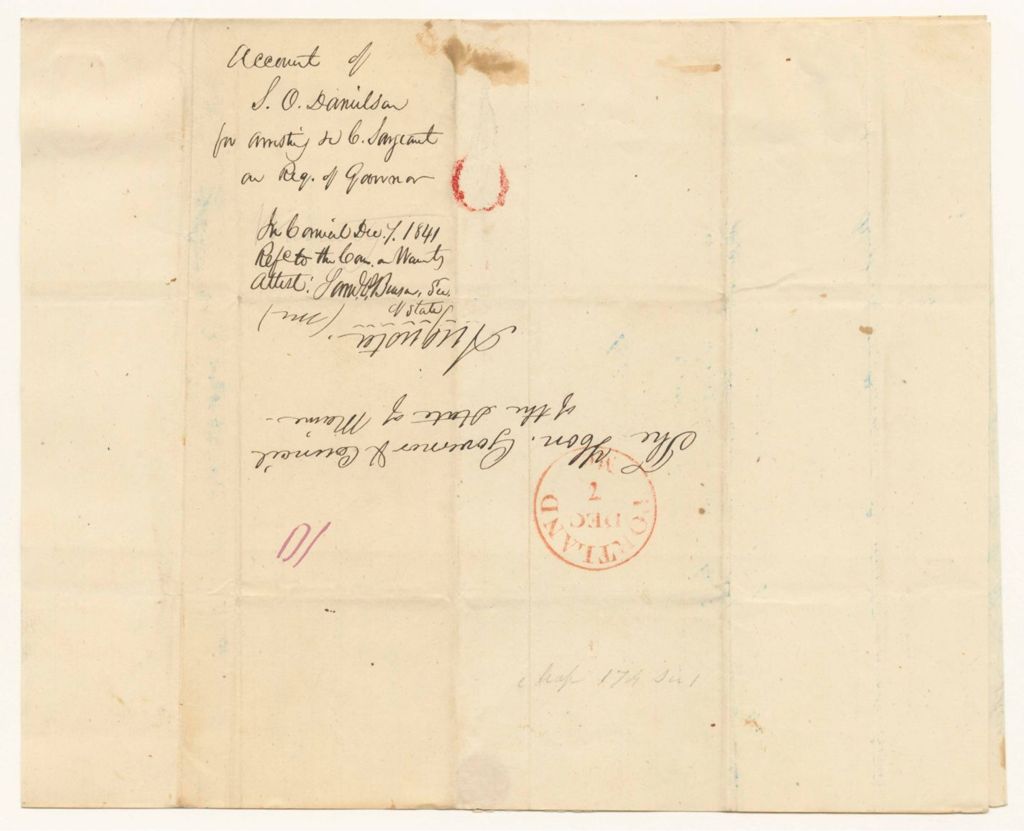 Account of
S. O. Danielson
for arresting C. Sargeant
on Req. of Governor
In Council Dec. 7. 1841
Refd to the Com. on Warrants
Attest: Benson, Sec.
of State
Augusta.
(Me)
The Hon. Governor & Council
of the State of Maine
PORTLAND
Me
DEC
7
10
Chap 174 Sec 1